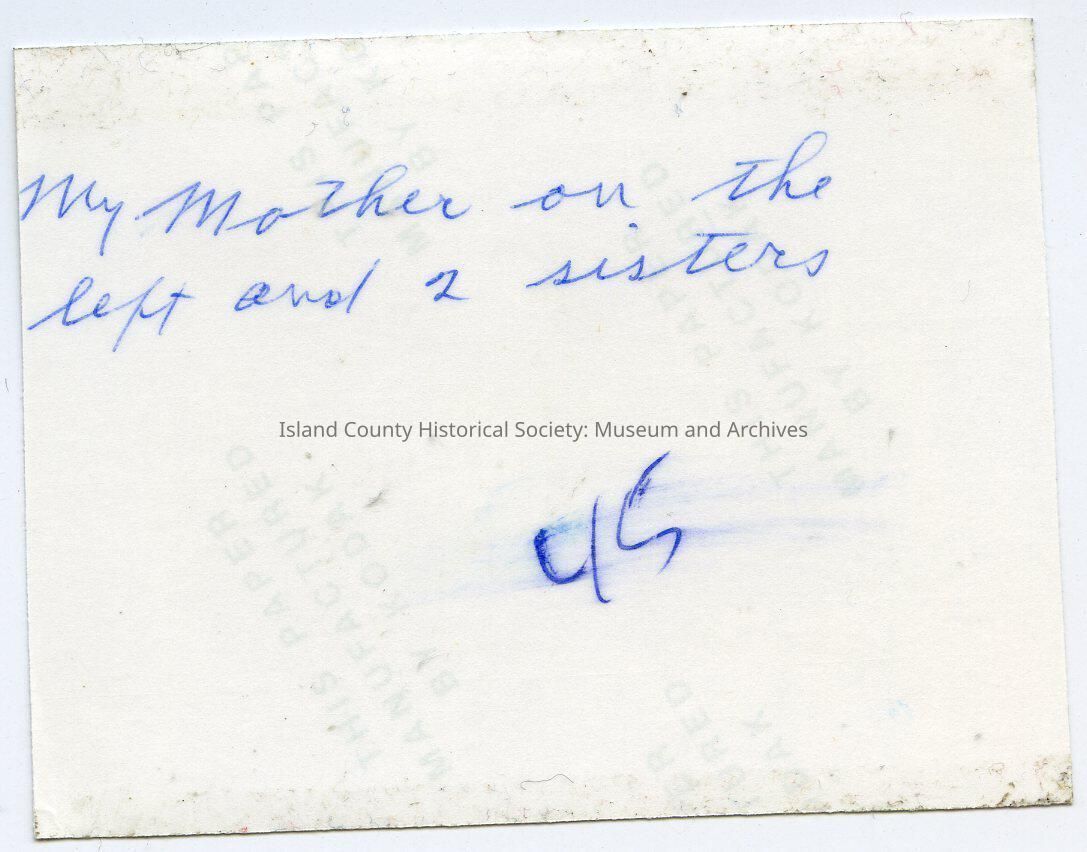 My Mother on the
left and 2 sisters
Island County Historical Society: Museum and Archives
45
THIS PAPER
MANUFACTURED
BY KODAK
THIS PAPER
MANUFACTURED
BY KODAK